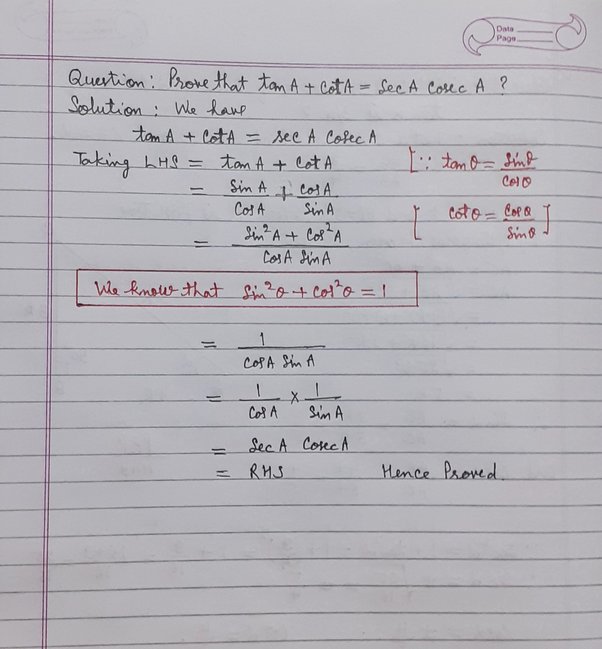 Data
Page
Question: Prove that tan A + Cot A = Sec A Cosec A ?
Solution: We have
tan A + Cot A = Sec A Cosec A
Taking LHS = tan A + Cot A [∵ tan θ = Sin θ / Cos θ
= Sin A / Cos A + Cos A / Sin A [ Cot θ = Cos θ / Sin θ ]
= Sin²A + Cos²A / Cos A Sin A
We know that Sin²θ + Cos²θ = 1
= 1 / Cos A Sin A
= 1 / Cos A × 1 / Sin A
= Sec A Cosec A
= RHS Hence Proved.